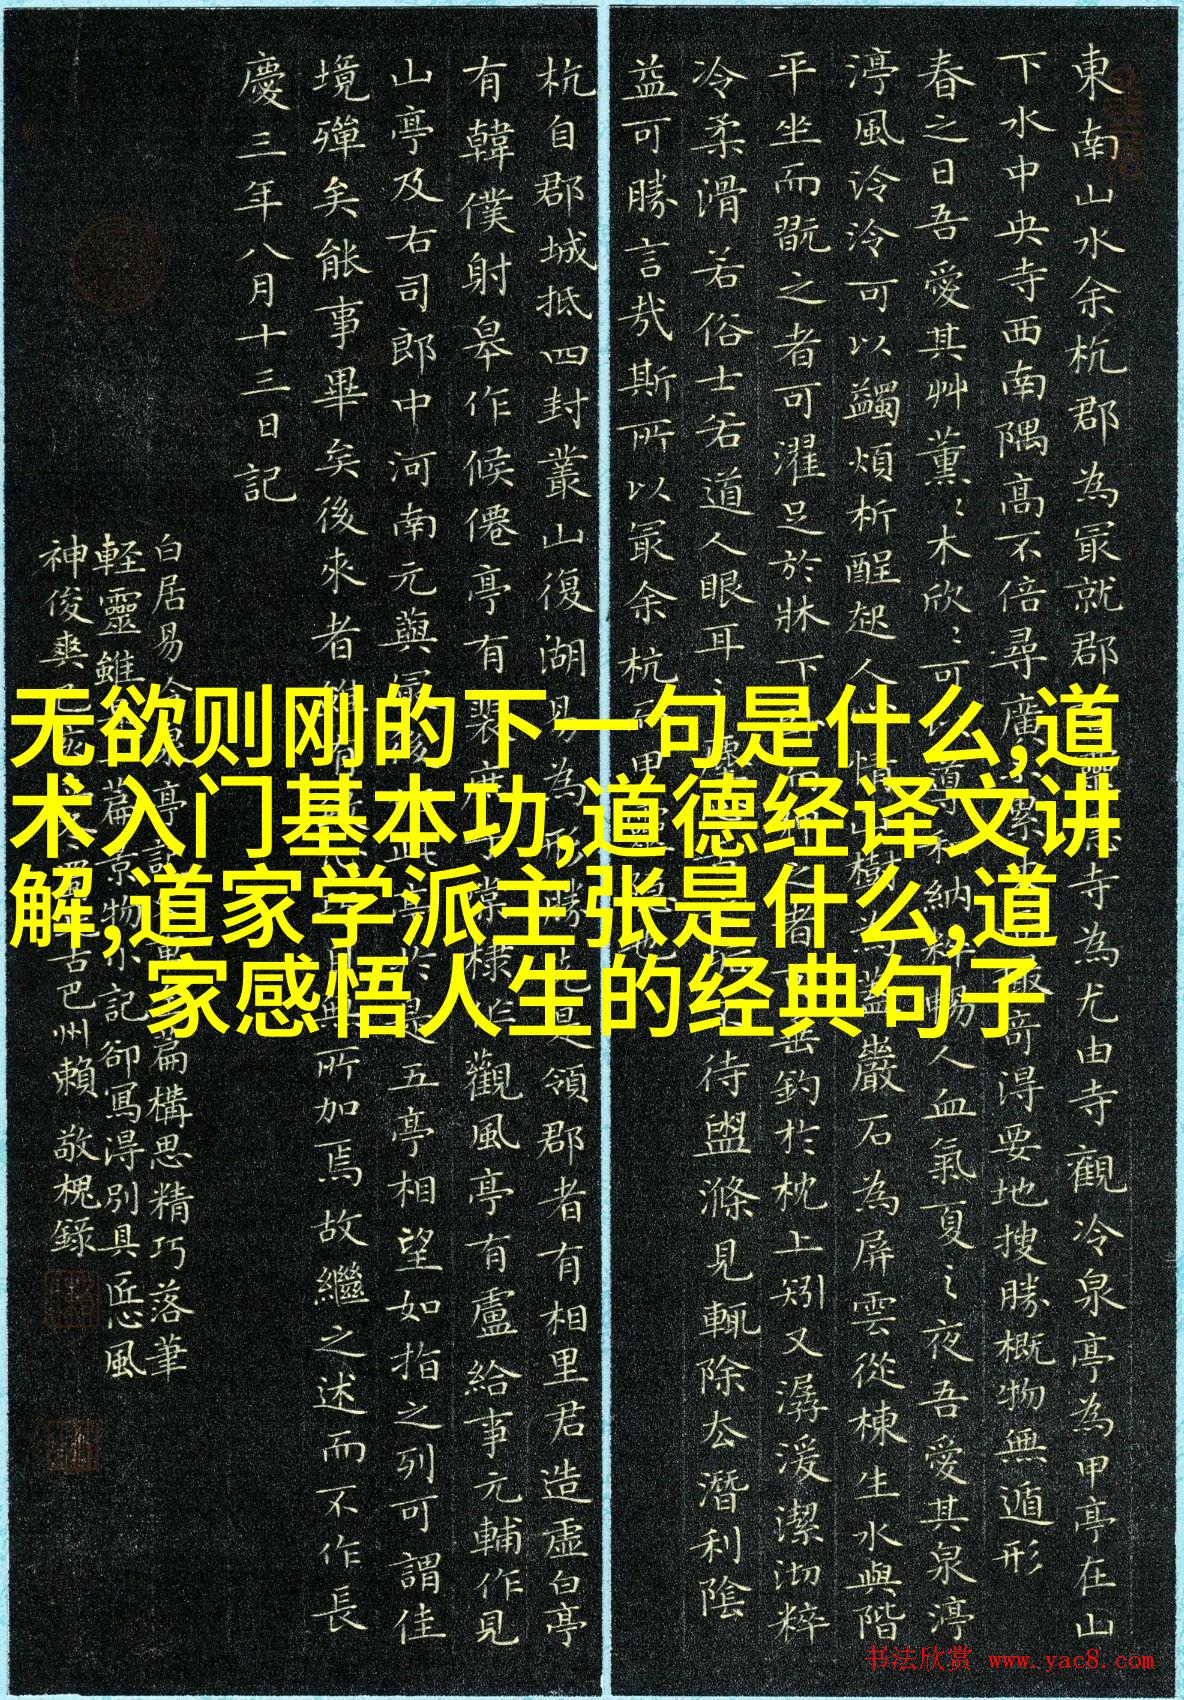 東南山水余杭郡為冣就郡寺為尤由寺觀冷泉亭為甲亭在山
下水中央寺西南隅高不倍尋廣奇淂要地搜勝概物無遁形
春之日吾愛其艸薰〻木欣〻可導和納粹暢人血氣夏之夜吾愛其泉渟
渟風泠泠可以蠲煩析酲起人心情山樹為盖巖石為屏雲從棟生水與階
平坐而翫之者可濯足於牀下者垂釣於枕上矧又潺湲潔沏粹
冷柔滑若俗士若道人眼耳之待盥滌見輒除去潛利陰
益可勝言哉斯所以冣余杭而甲靈隱也
杭自郡城抵四封叢山復湖易為形勝先是領郡者有相里君造虛白亭
有韓僕射皋作候僊亭有裴庶子棠棣作觀風亭有盧給事元輔作見
山亭及右司郎中河南元藇最後作此亭於是五亭相望如指之列可謂佳
境殫矣能事畢矣後來者雖有所加焉故繼之述而不作長
慶三年八月十三日記
白居易冷泉亭記篇構思精巧落筆
軽靈雖篇景物小記卻寫得別具匠心風
神俊爽古巴州賴敬槐錄
无欲则刚的下一句是什么,道
术入门基本功,道德经译文讲
解,道家学派主张是什么,道
家感悟人生的经典句子
书法欣赏 www.yac8.com